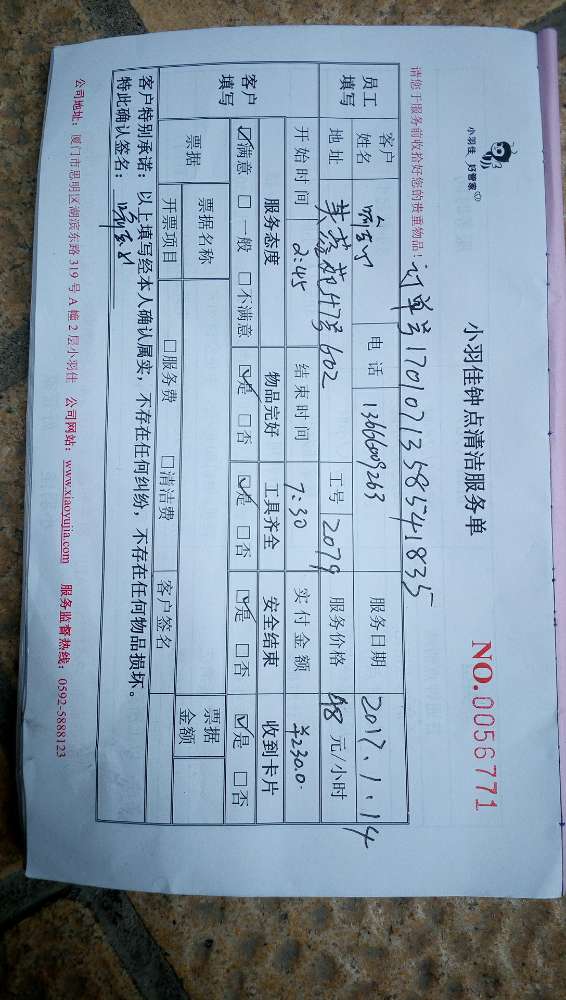 小羽佳 好管家
小羽佳钟点清洁服务单
NO.0056771
请您于服务前收拾好您的贵重物品!
订单号1701071358541835
员工填写
客户姓名
电话 1366009263
服务日期 2017.1.14
地址 47号602
工号 2079
服务价格 48 元/小时
开始时间 2:45
结束时间 7:30
实付金额 ¥230.0
客户填写
服务态度 物品完好 工具齐全 安全结束 收到卡片
☑满意 □一般 □不满意 ☑是 □否 ☑是 □否 ☑是 □否 ☑是 □否
票据 票据名称 票据金额
开票项目 □服务费 □清洁费 客户签名
客户特别承诺:以上填写经本人确认属实,不存在任何纠纷,不存在任何物品损坏。
特此确认签名:
公司地址:厦门市思明区湖滨东路319号A幢2层小羽佳 公司网站:www.xiaoyujia.com 服务监督热线:0592-5888123